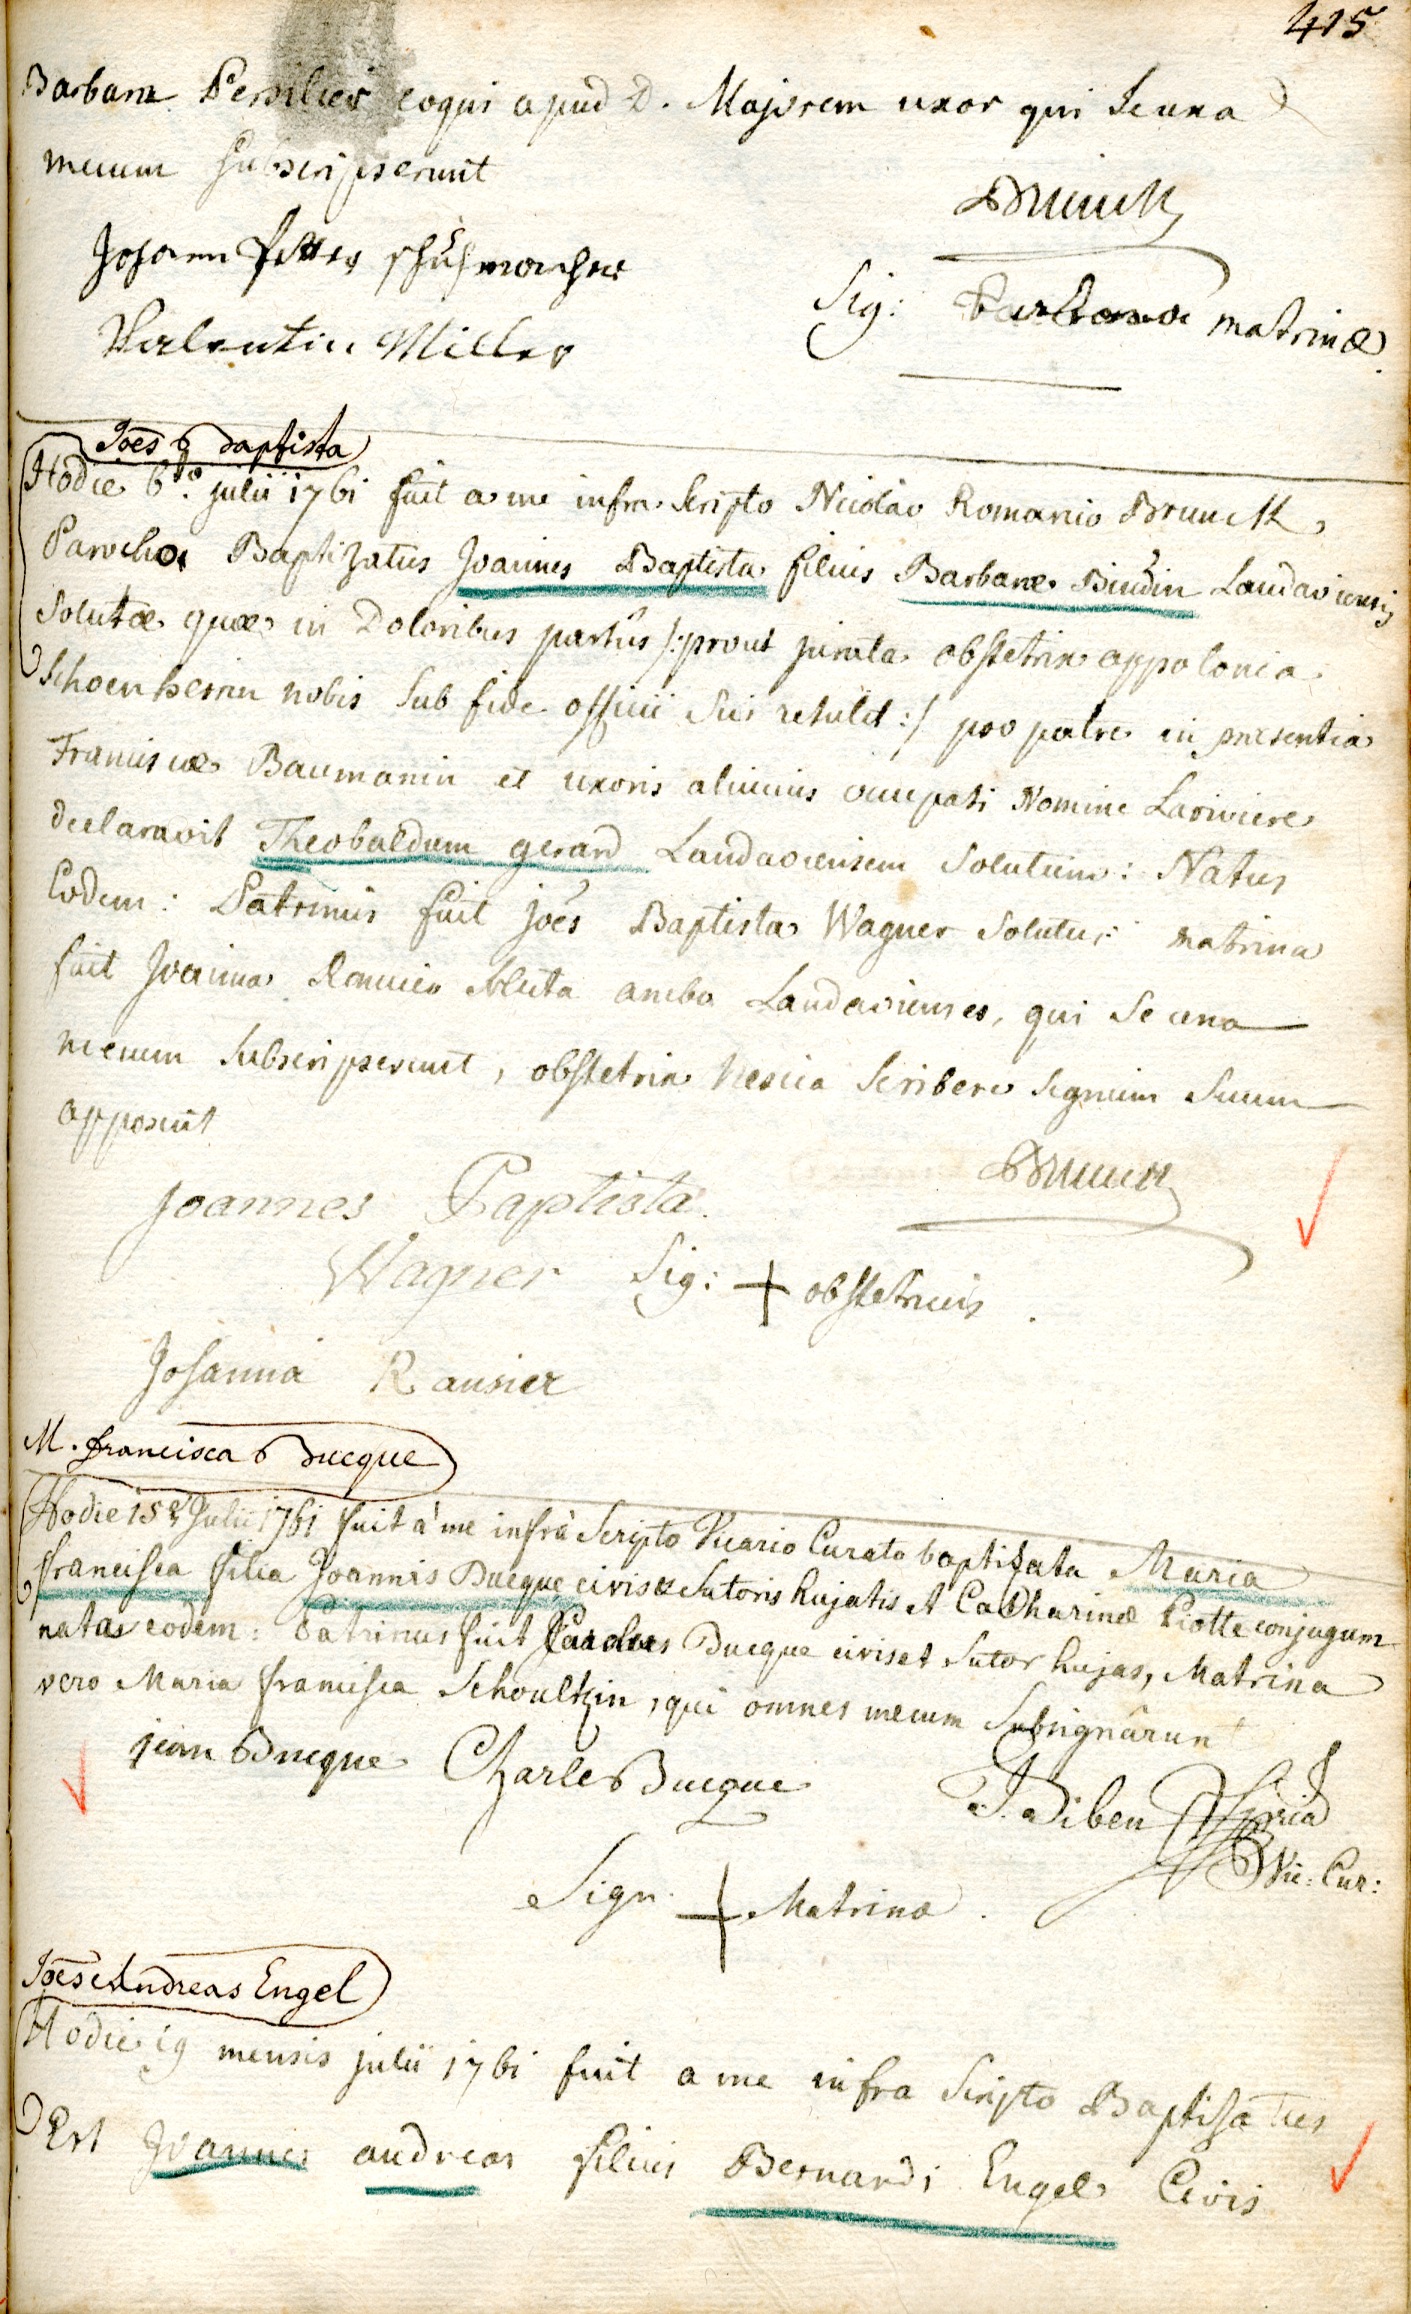 415
Barbara coqui apud D. Majorem uxor qui se una
mecum subscripserunt
Brunck
Johann Petter schuhmacher
Sig: matrinæ
Valentin Miller
Joẽs Baptista
Hodie 6ta julii 1761 fuit a me infra scripto Nicolao Romanio Brunck
Parocho Baptizatus Joannes Baptista filius Barbaræ Bindin Landaviensis
solutæ quæ in Doloribus partûs /: prout jurata obstetrix appolonia
Schoenherrin nobis sub fide officii sui retulit :/ pro patre in præsentia
Franciscæ Baumanin et uxoris alicuius occupati Nomine Lariviere
declaravit Theobaldum gerard Landaviensem solutum: Natus
Eodem: Patrinus fuit joẽs Baptista Wagner solutus: matrina
fuit Joanna solluta ambo Landavienses, qui se una
mecum subscripserunt, obstetrix nescia scribere signum suum
apposuit
Brunck
Joannes Baptista
Wagner Sig: + obstetricis
Johanna Rausier
M. francisca Bucque
Hodie 15 Julii 1761 fuit à me infrà scripto Vicario Curato baptisata Maria
francisca filia Joannis Bucque civis et sutoris hujatis et Catharinæ Piotte conjugum
nata eodem: Patrinus fuit Carolus Bucque civis et sutor hujas, Matrina
vero Maria francisca Schoultzin, qui omnes mecum subsignârunt
jean Bucque Charle Bucque
J. Diben
Vic: Cur:
Sign. + Matrinæ.
Joẽs Andreas Engel
Hodie 19 mensis julii 1761 fuit a me infra scripto Baptisatus
Est Joannes andreas filius Bernardi Engel Civis